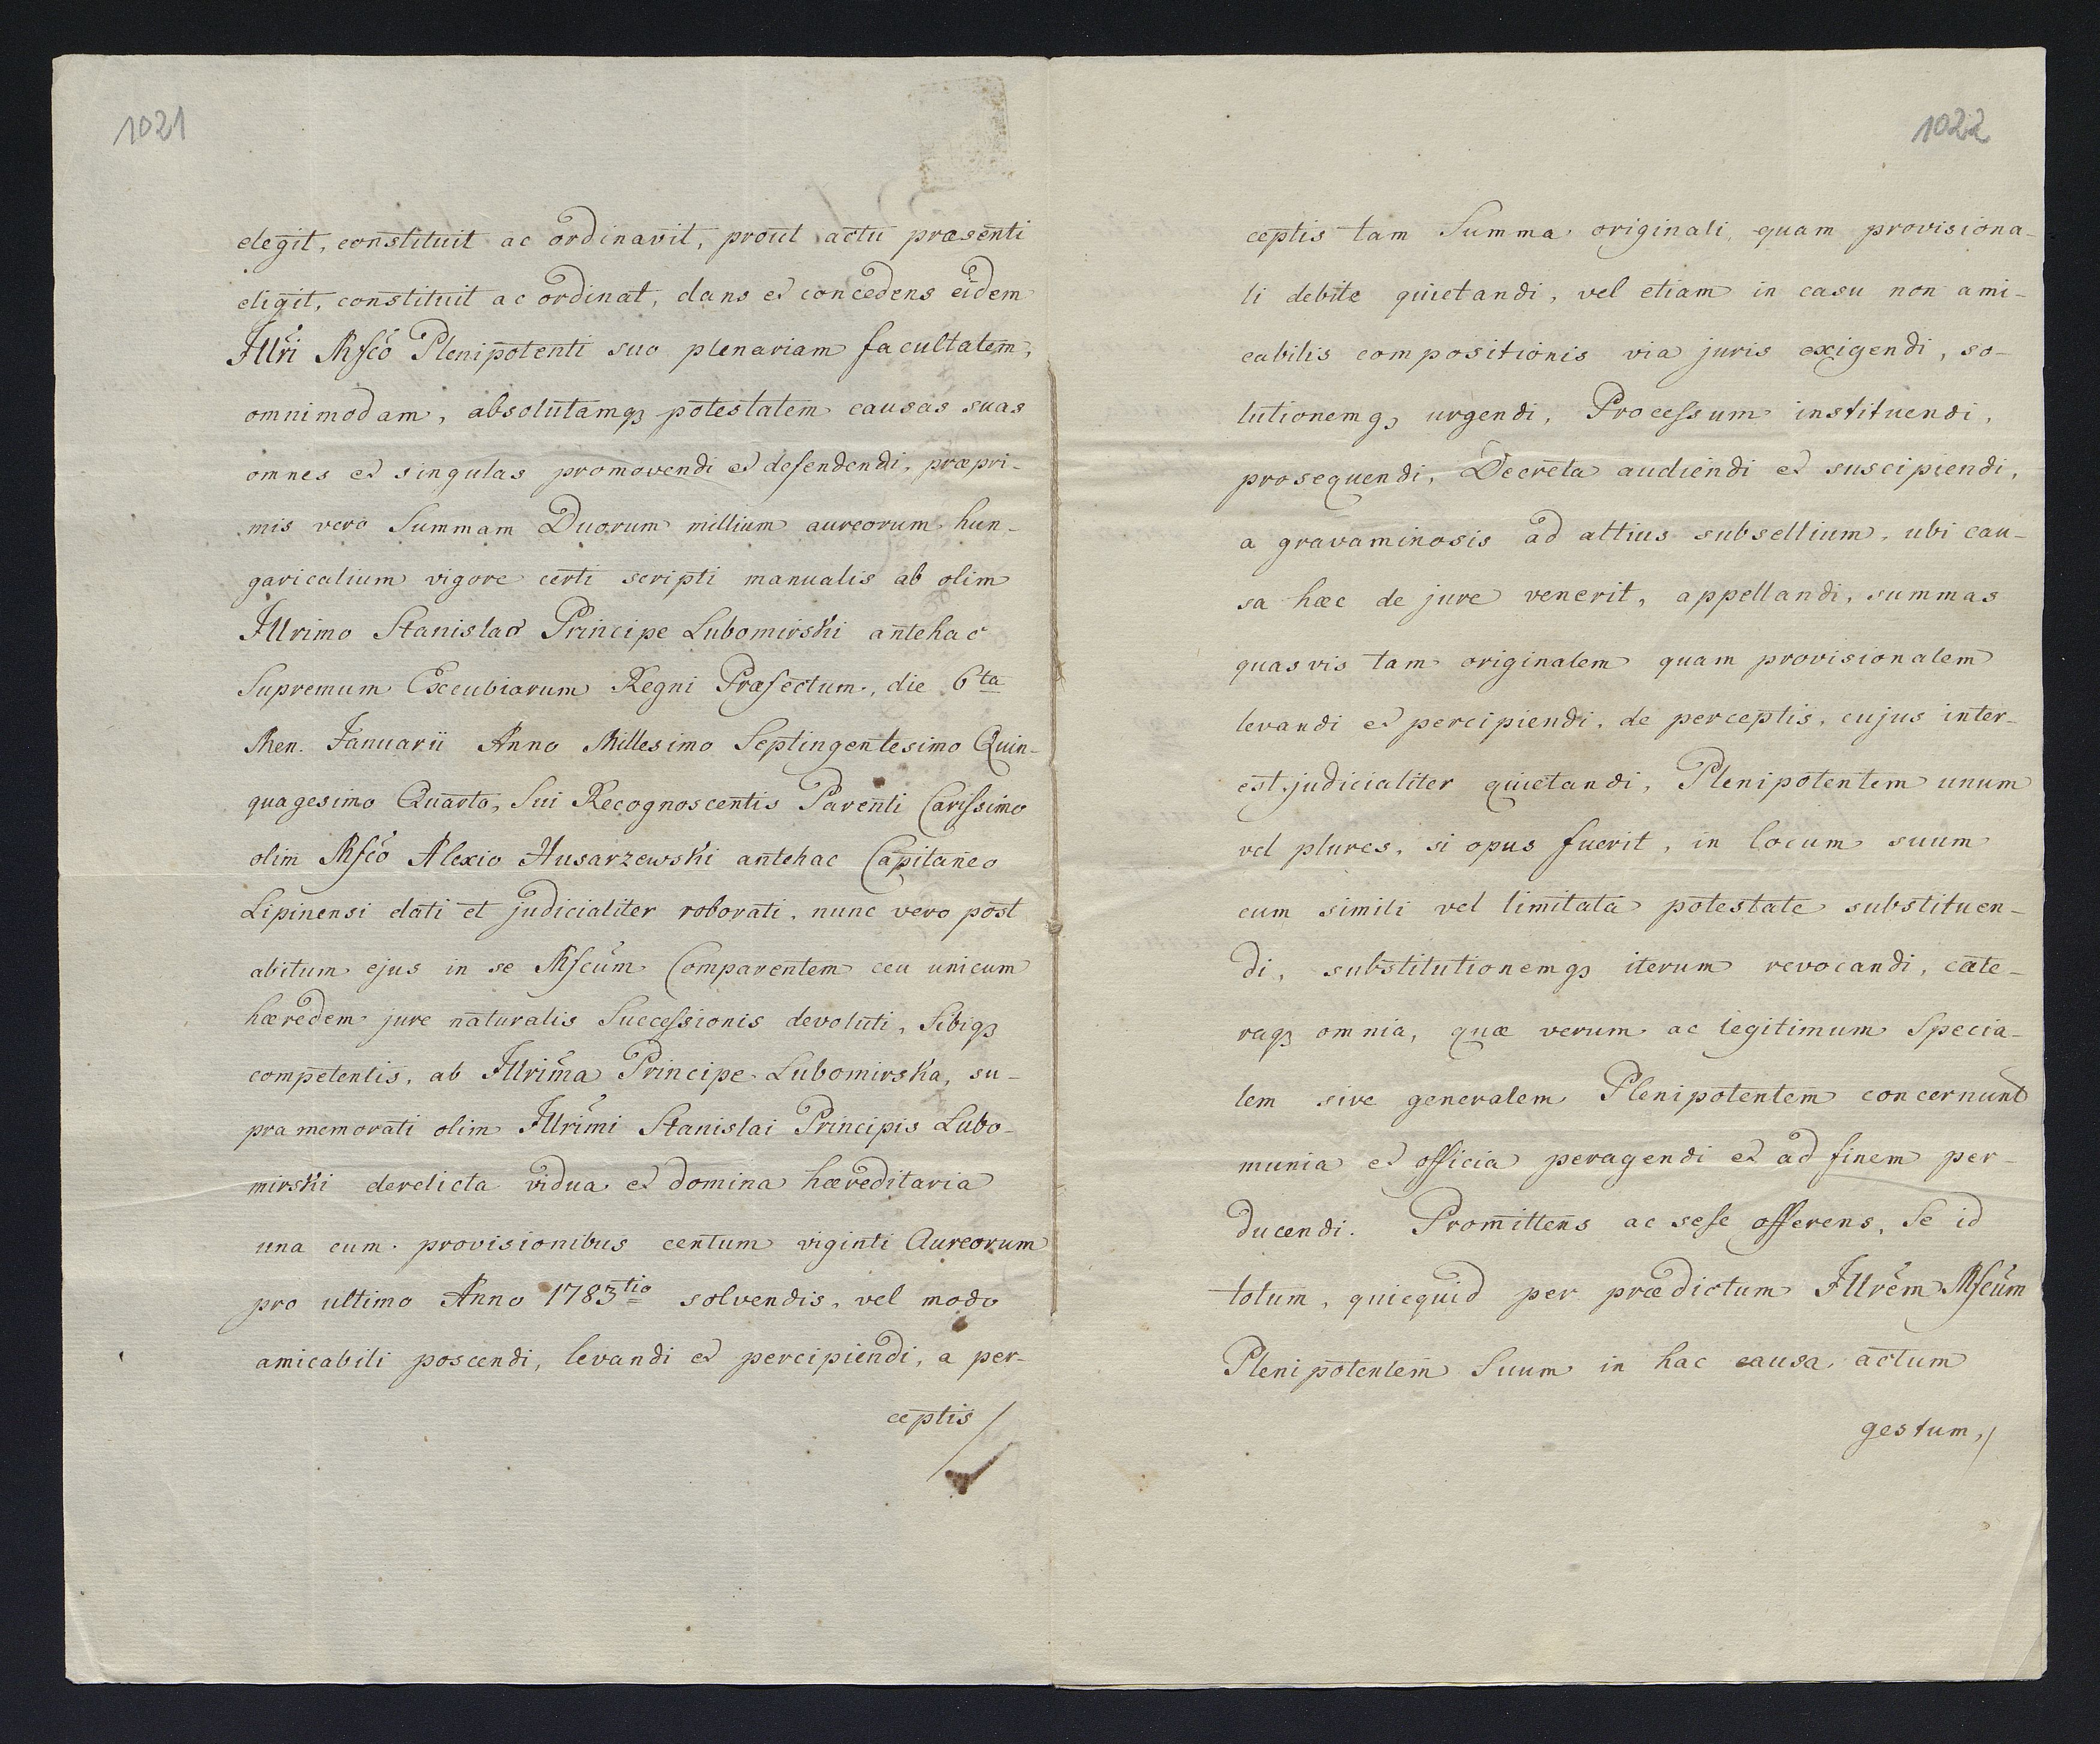 1021
elegit, constituit ac ordinavit, prout actu præsenti
eligit, constituit ac ordinat, dans et concedens eidem
Illri Mfco Plenipotenti suo plenariam facultatem,
omnimodam, absolutamq3 potestatem causas suas
omnes et singulas promovendi et defendendi, præpri-
mis vero Summam Duorum millium aureorum hun-
garicalium vigore certi scripti manualis ab olim
Illrimo Stanislao Principe Lubomirski antehac
Supremum Excubiarum Regni Præfectum, die 6ta
Men. Januarii Anno Millesimo Septingentesimo Quin-
quagesimo Quarto, Sui Recognoscentis Parenti Carissimo
olim Mfco Alexio Husarzewski antehac Capitaneo
Lipinensi dati et judicialiter roborati, nunc vero post
abitum ejus in se Mfcum Comparentem ceu unicum
hæredem jure naturalis Successionis devoluti, Sibiq3
competentis, ab Illrima Principe Lubomirska, su-
pramemorati olim Illrimi Stanislai Principis Lubo-
mirski derelicta vidua et domina hæreditaria
una cum provisionibus centum viginti Aureorum
pro ultimo Anno 1783tio solvendis, vel modo
amicabili poscendi, levandi et percipiendi, a per-
ceptis
1022
ceptis tam Summa originali, quam provisiona-
li debite quietandi, vel etiam in casu non ami-
cabilis compositionis via juris exigendi, so-
lutionemq3 urgendi, Processum instituendi,
prosequendi, Decreta audiendi et suscipiendi,
a gravaminosis ad altius subsellium, ubi cau-
sa hæc de jure venerit, appellandi, summas
quasvis tam originalem quam provisionalem
levandi et percipiendi, de perceptis, cujus inter-
est judicialiter quietandi, Plenipotentem unum
vel plures, si opus fuerit, in locum suum
cum simili vel limitata potestate substituen-
di, substitutionemq3 iterum revocandi, cæte-
raq3 omnia, quæ verum ac legitimum Specia-
lem sive generalem Plenipotentem concernunt
munia et officia peragendi et ad finem per-
ducendi. Promittens ac sese offerens, Se id
totum, quicquid per prædictum Illrem Mfcum
Plenipotentem Suum in hac causa, actum
gestum,